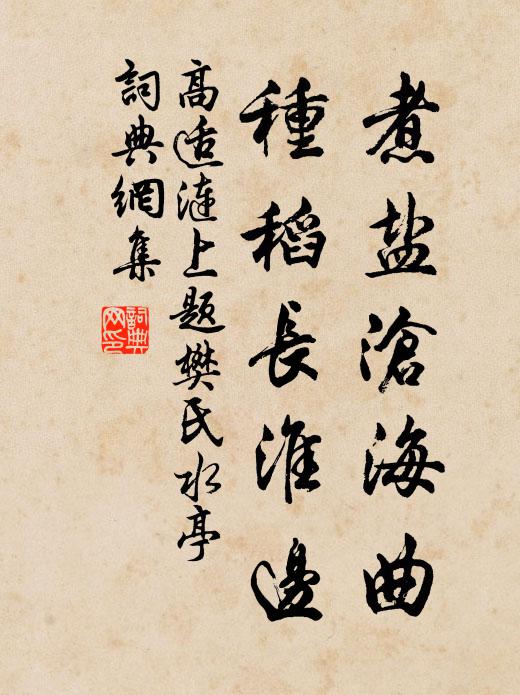 煮盐滄海曲
種稻長淮邊
高适漣上題樊氏水亭
詞典網集
詞典网印